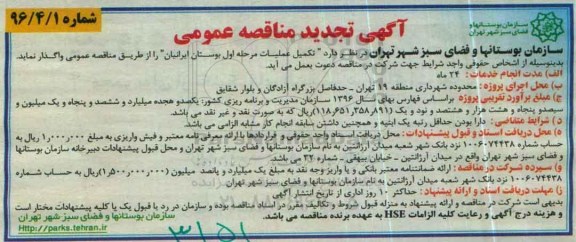 سازمان بوستانها و
فضای سبز شهر تهران
آگهی تجدید مناقصه عمومی
شماره ۹۶/۴/۱
سازمان بوستانها و فضای سبز شهر تهران در نظر دارد " تکمیل عملیات مرحله اول بوستان ایرانیان" را از طریق مناقصه عمومی واگذار نماید.
بدینوسیله از اشخاص حقوقی واجد شرایط جهت شرکت در مناقصه دعوت بعمل می آید.
الف) مدت انجام خدمات: ۲۴ ماه
ب) محل اجرای پروژه: محدوده شهرداری منطقه ۱۹ تهران - حدفاصل بزرگراه آزادگان و بلوار شقایق
ج) مبلغ برآورد تقریبی پروژه: براساس فهارس بهای سال ۱۳۹۶ سازمان مدیریت و برنامه ریزی کشور: یکصدو هجده میلیارد و ششصد و پنجاه و یک میلیون و
سیصدو پنجاه و هشت هزار و هشتصد و نود و یک (۱۱۸,۶۵۱,۳۵۸,۸۹۱) ریال که به صورت نقد و غیر نقد می باشد.
د) شرایط متقاضی: دارا بودن حداقل رتبه یک ابنیه و همچنین داشتن سابقه انجام کار مشابه الزامی می باشد.
ه) محل دریافت اسناد و قبول پیشنهادات: جهت دریافت اسناد واحد حقوقی و قراردادها با ارائه معرفی نامه معتبر و فیش واریزی به مبلغ ۱,۰۰۰,۰۰۰ ریال به
حساب شماره ۱۰۰۶۰۷۴۴۳۸ نزد بانک شهر شعبه میدان آرژانتین به نام سازمان بوستانها و فضای سبز شهر تهران و محل قبول پیشنهادات دبیرخانه سازمان بوستانها
و فضای سبز شهر تهران واقع در میدان آرژانتین - خیابان بیهقی - شماره ۳۲ می باشد.
و) سپرده شرکت در مناقصه: ارائه ضمانتنامه معتبر بانکی و یا واریز وجه نقد به مبلغ یک میلیارد و پانصد میلیون (۱,۵۰۰,۰۰۰,۰۰۰) ریال به حساب شماره
۱۰۰۶۰۷۴۴۳۸ نزد بانک شهر شعبه میدان آرژانتین به نام سازمان بوستانها و فضای سبز شهر تهران
ز) مهلت دریافت اسناد و ارائه پیشنهاد: حداکثر ۱۰ روز اداری از تاریخ انتشار آگهی
بدیهی است شرکت در مناقصه و ارائه پیشنهاد به منزله قبول شروط و تکالیف مقرر در اسناد مناقصه بوده و سازمان در رد یا قبول یک یا کلیه پیشنهادات مختار است
و هزینه درج آگهی و رعایت کلیه الزامات HSE به عهده برنده مناقصه می باشد.
سازمان بوستانها و فضای سبز شهر تهران
http://parks.tehran.ir
۳۱۵۱